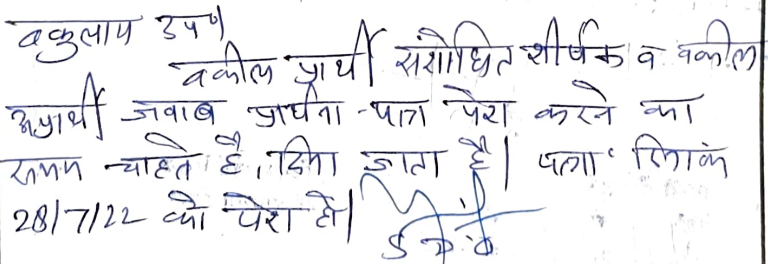 वकुलाय उप०
वकील प्रार्थी संशोधित शीर्षक व वकील
अप्रार्थी जवाब प्रार्थना-पत्र पेश करने का
समय चाहते है, दिया जाता है। पत्रा० दिनांक
28/7/22 को पेश हो।